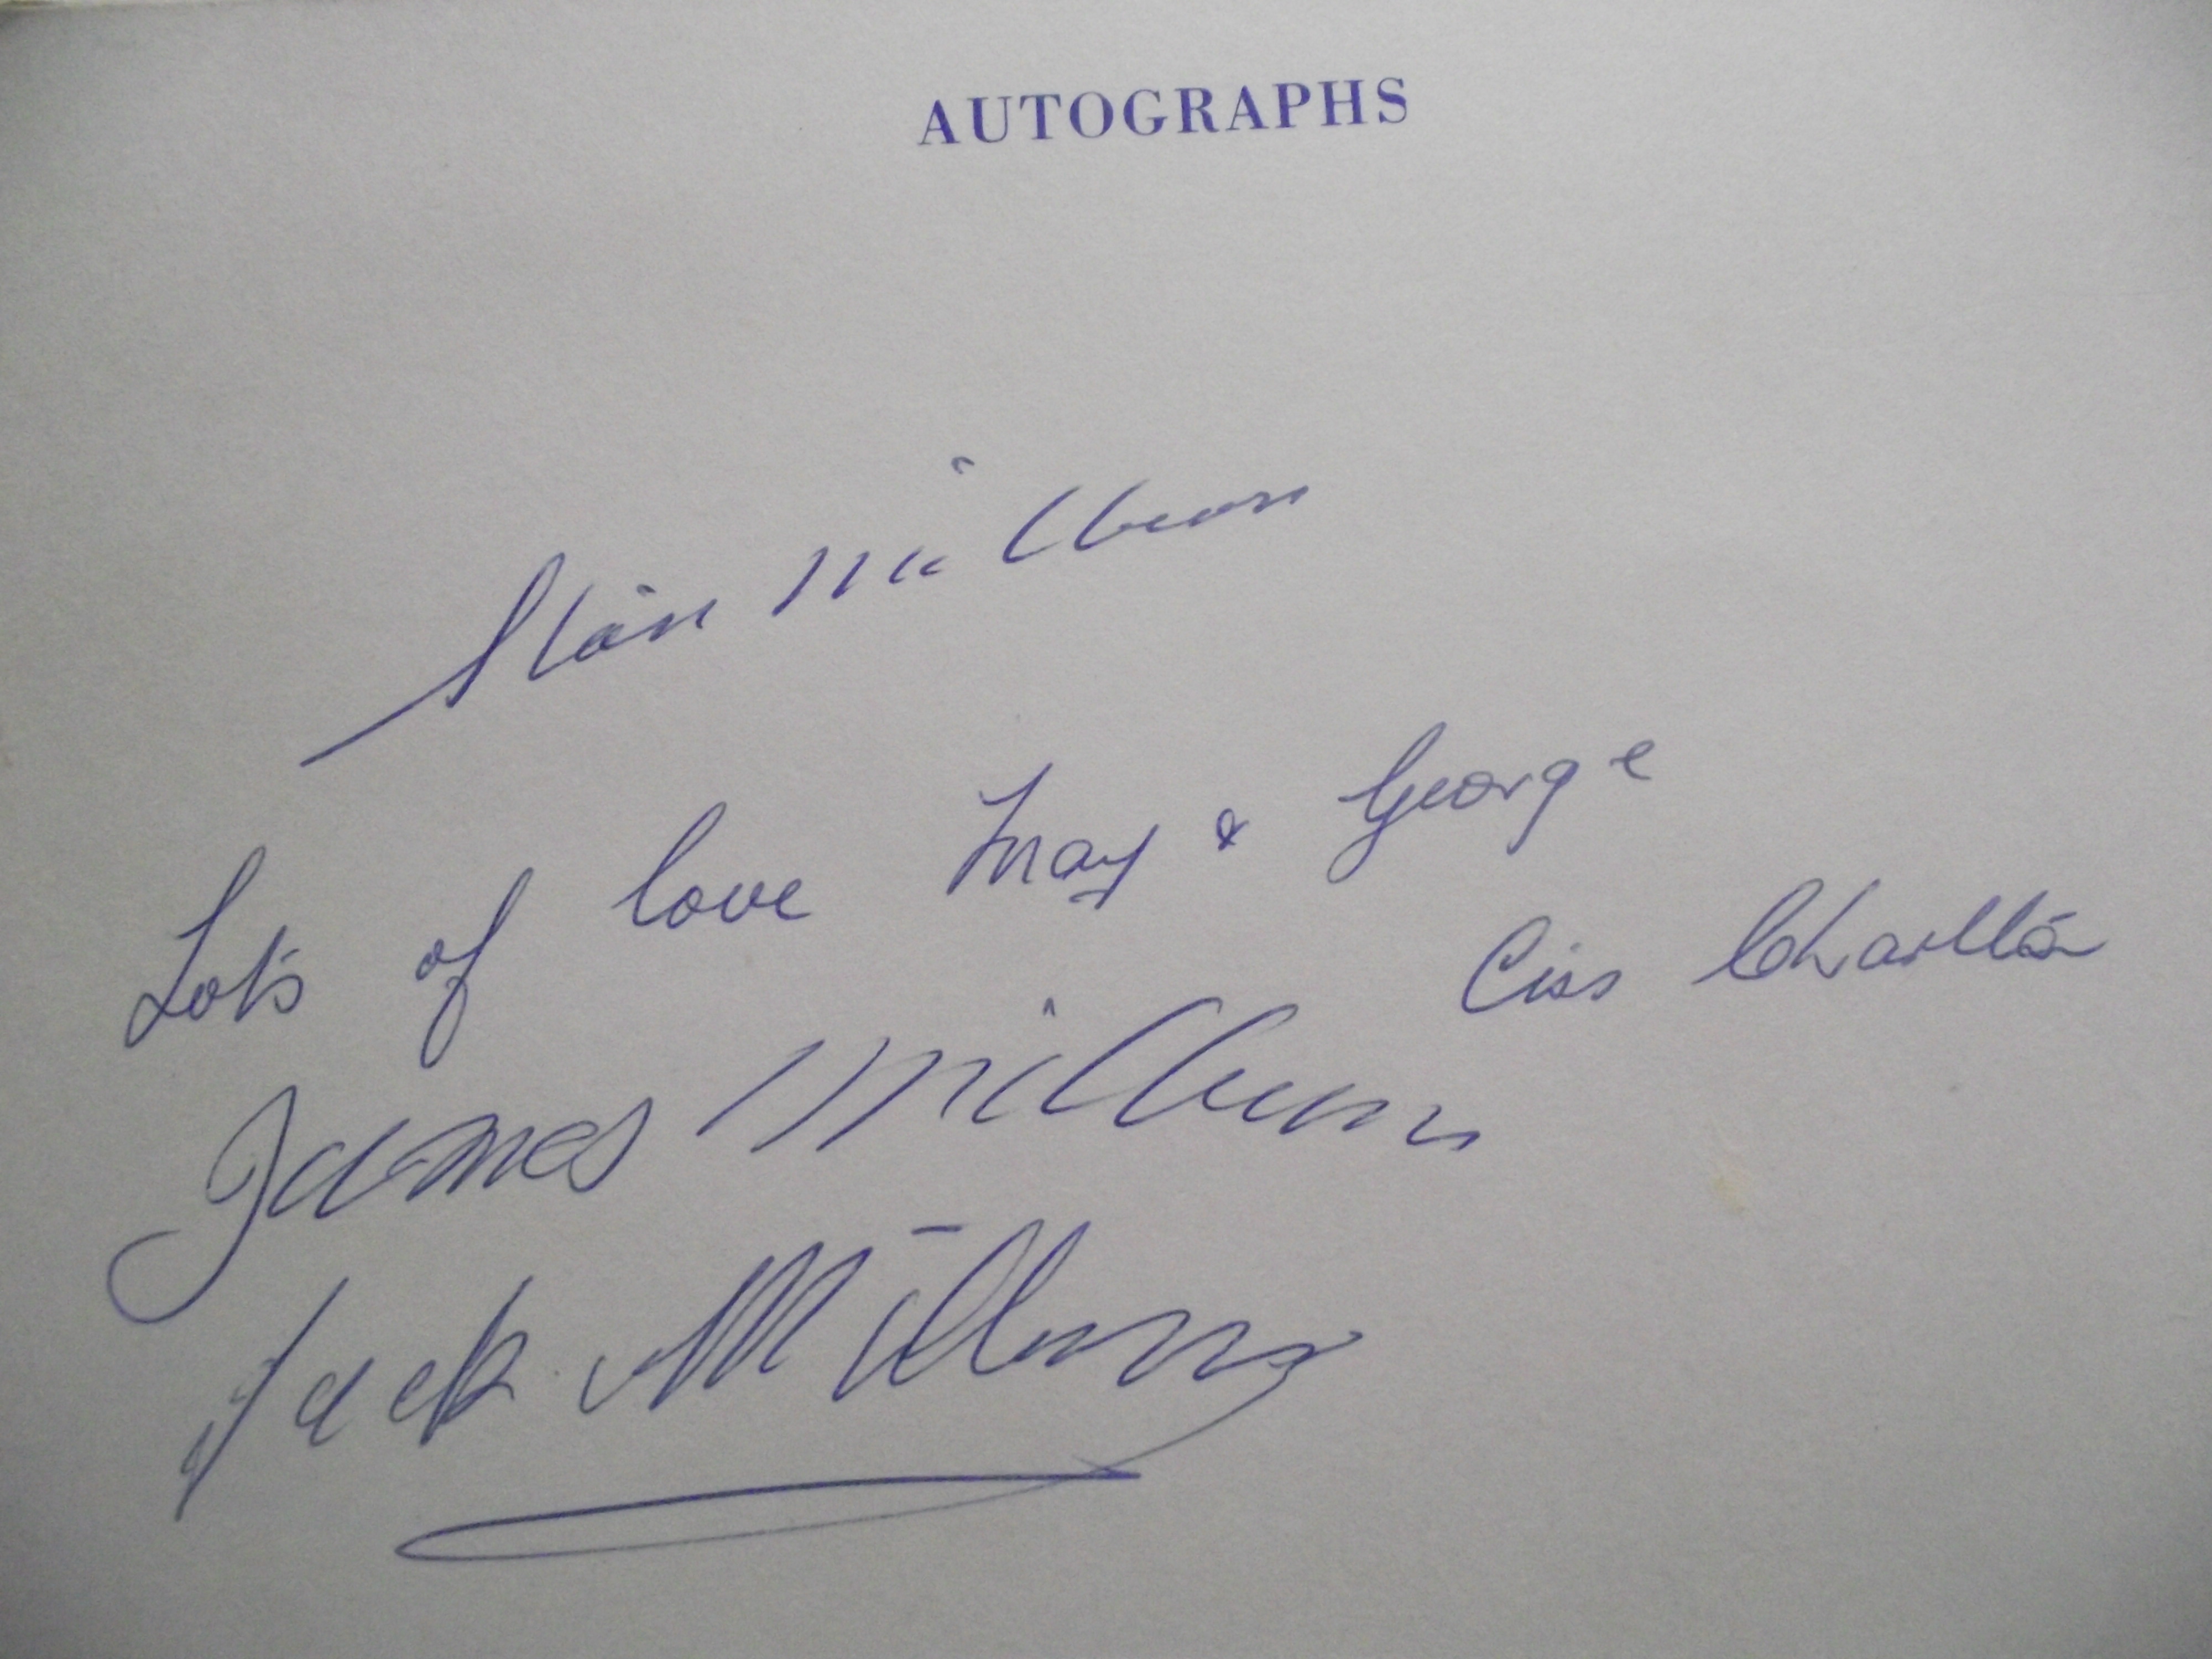 AUTOGRAPHS
Stan Milburn
Lots of love May & George
Ciss Charlton
James Milburn
Jack Milburn